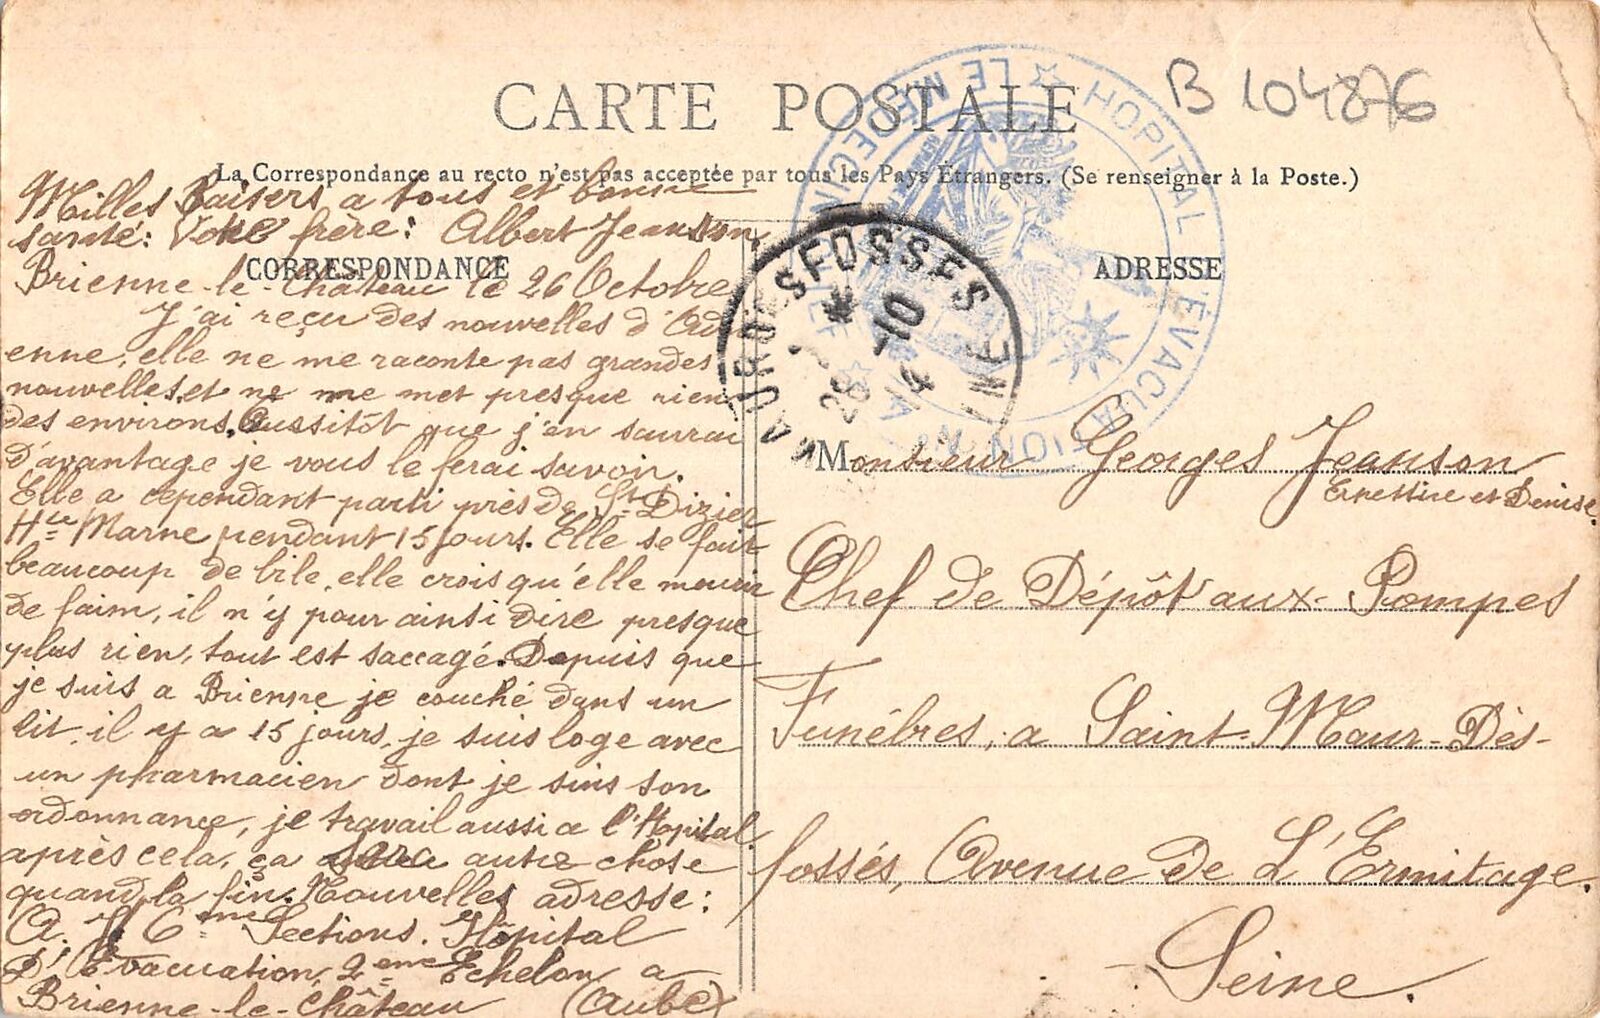 B 104876
CARTE POSTALE
La Correspondance au recto n'est pas acceptée par tous les Pays Étrangers. (Se renseigner à la Poste.)
HOPITAL D'ÉVACUATION
LE MEDECIN
ST MAUR DES FOSSES
28 -10
14
CORRESPONDANCE
Milles Baisers a tous et bonne
santé: Votre frère: Albert Jeanson.
Brienne-le-Château le 26 Octobre
J'ai reçu des nouvelles d'Adri
enne, elle ne me raconte pas grandes
nouvelles, et ne me met presque rien
des environs, Aussitôt que j'en saurai
d'avantage je vous le ferai savoir.
Elle a cependant parti près de St Dizier
Hte Marne pendant 15 jours. Elle se fait
beaucoup de bile, elle crois qu'elle mourir
de faim, il n'y pour ainsi dire presque
plus rien, tout est saccagé. Depuis que
je suis a Brienne je couché dans un
lit, il y a 15 jours, je suis loge avec
un pharmacien dont je suis son
ordonnance, je travail aussi a l'Hopital.
après cela, ça autre chose
quand la fin. Nouvelles adresse:
A. J. 6eme Sections. Hôpital
D'Evacuation, 2eme Echelon a
Brienne-le-Château (Aube)
ADRESSE
Monsieur Georges Jeanson
Ernestine et Denise.
Chef de Dépôt aux Pompes
Funébres, a Saint-Maur-Dès-
fossés, Avenue de L'Ermitage.
Seine.